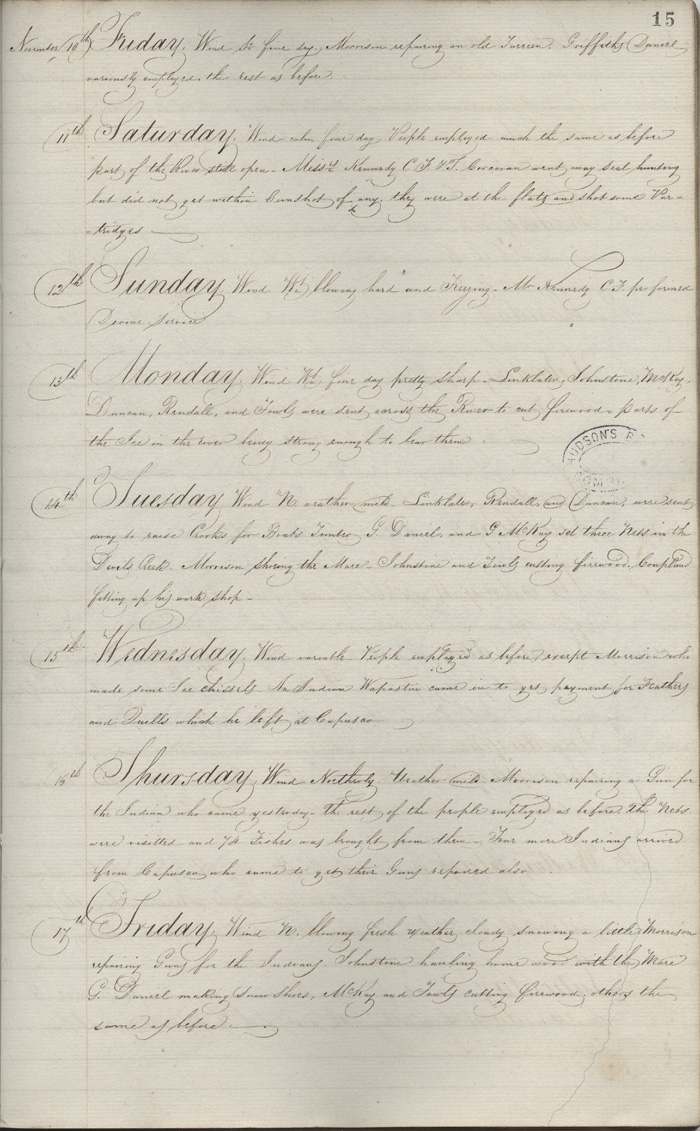 15
November 10th Friday. Wind Sd. fine day, Morrison repairing an old Tureen. Griffith, Daniel
variously employed the rest as before
11th Saturday. Wind calm fine day People employed much the same as before
part of the River still open - Messrs. Kennedy C.F. & T. Corcoran went away seal hunting
but did not get within Gunshot of any, they were at the flats and shot some Par-
-tridges
12th Sunday Wind Wt. blowing hard and Freezing - Mr Kennedy C.F. proformed
Devine Service
13th Monday, Wind Wt. fine day pretty sharp - Linklater, Johnstone, McKay,
Duncan, Rendall, and Fowls were sent across the River to cut firewood - parts of
the Ice in the river being strong enough to bear them
HUDSON'S B
14th Tuesday Wind N. weather mild - Linklater, Rendall, and Duncan, were sent
away to raise Crooks for Boats Timber, G. Daniel, and G McKay set three Nets in the
Devils Creek. Morrison shoeing the Mare - Johnstone and Fowls cutting firewood, Coupland
fitting up his work shop -
15th Wednesday. Wind variable People employed as before except Morrison who
made some Ice chissels. An Indian Wapastie came in to get payment for Feathers
and Quills which he left at Capusco
16th Thursday Wind Northerly Weather mild - Morrison repairing a Gun for
the Indian who came yesterday. the rest of the people employed as before the Nets
were visitted and 74 Fishes was brought from them - Four more Indians arrived
from Capusco who came to get their Guns repaired also
17th Friday, Wind N. blowing fresh weather cloudy snowing a little, Morrison
repairing Guns for the Indians, Johnstone hauling home wood with the Mare
G. Daniel making Snow Shoes, McKay and Fowls cutting firewood, others the
same as before